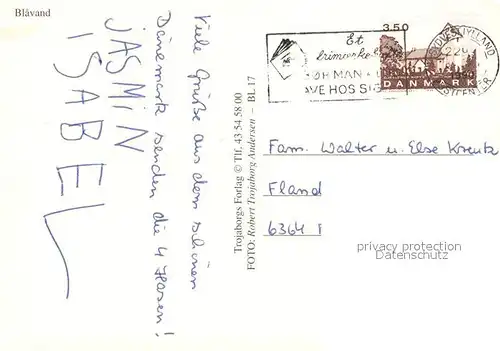 Blåvand
Viele Grüße aus dem schönen
Dänemark senden die 4 Hasen!
JASMIN
ISABEL
Trojaborgs Forlag © Tlf. 43 54 58 00
FOTO: Robert Trojaborg Andersen – BL 17
350
DANMARK
Et
frimærke
MAN
HOS
Fam. Walter u. Else Kreutz
Fland
6364 I
privacy protection
Datenschutz